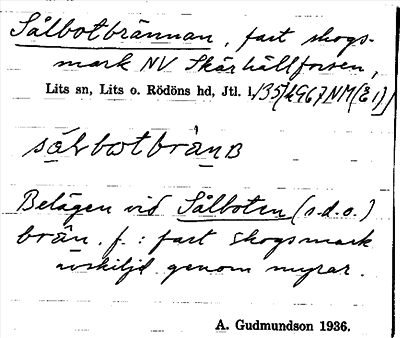 Sålbotbrännan, fast skogs-
mark NV Skärhällforsen,
Lits sn, Lits o. Rödöns hd, Jtl. l.
sålbotbrän
Belägen vid Sålboten (s.d.o.)
brän. f.: fast skogsmark
avskiljd genom myrar.
A. Gudmundson 1936.